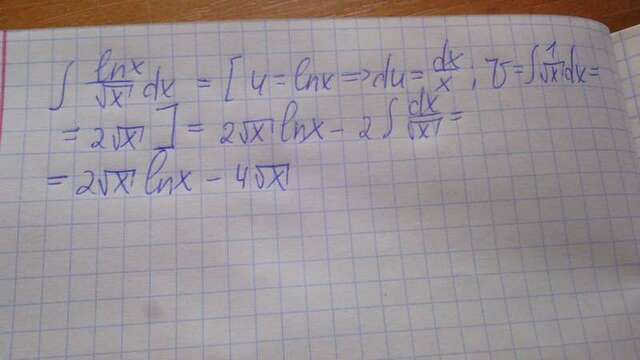 ∫ lnx/√x dx = [ u = lnx ⇒ du = dx/x ; V = ∫ 1/√x dx =
= 2√x ] = 2√x lnx - 2 ∫ dx/√x =
= 2√x lnx - 4√x